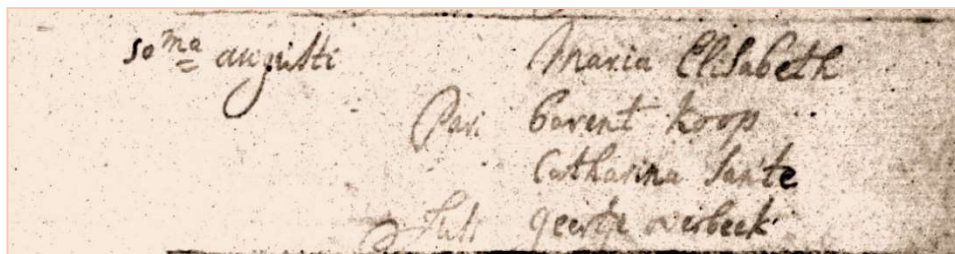 30ma augusti Maria Elisabeth
Par: barent Koop
Catharina Sante
geertje overbeek